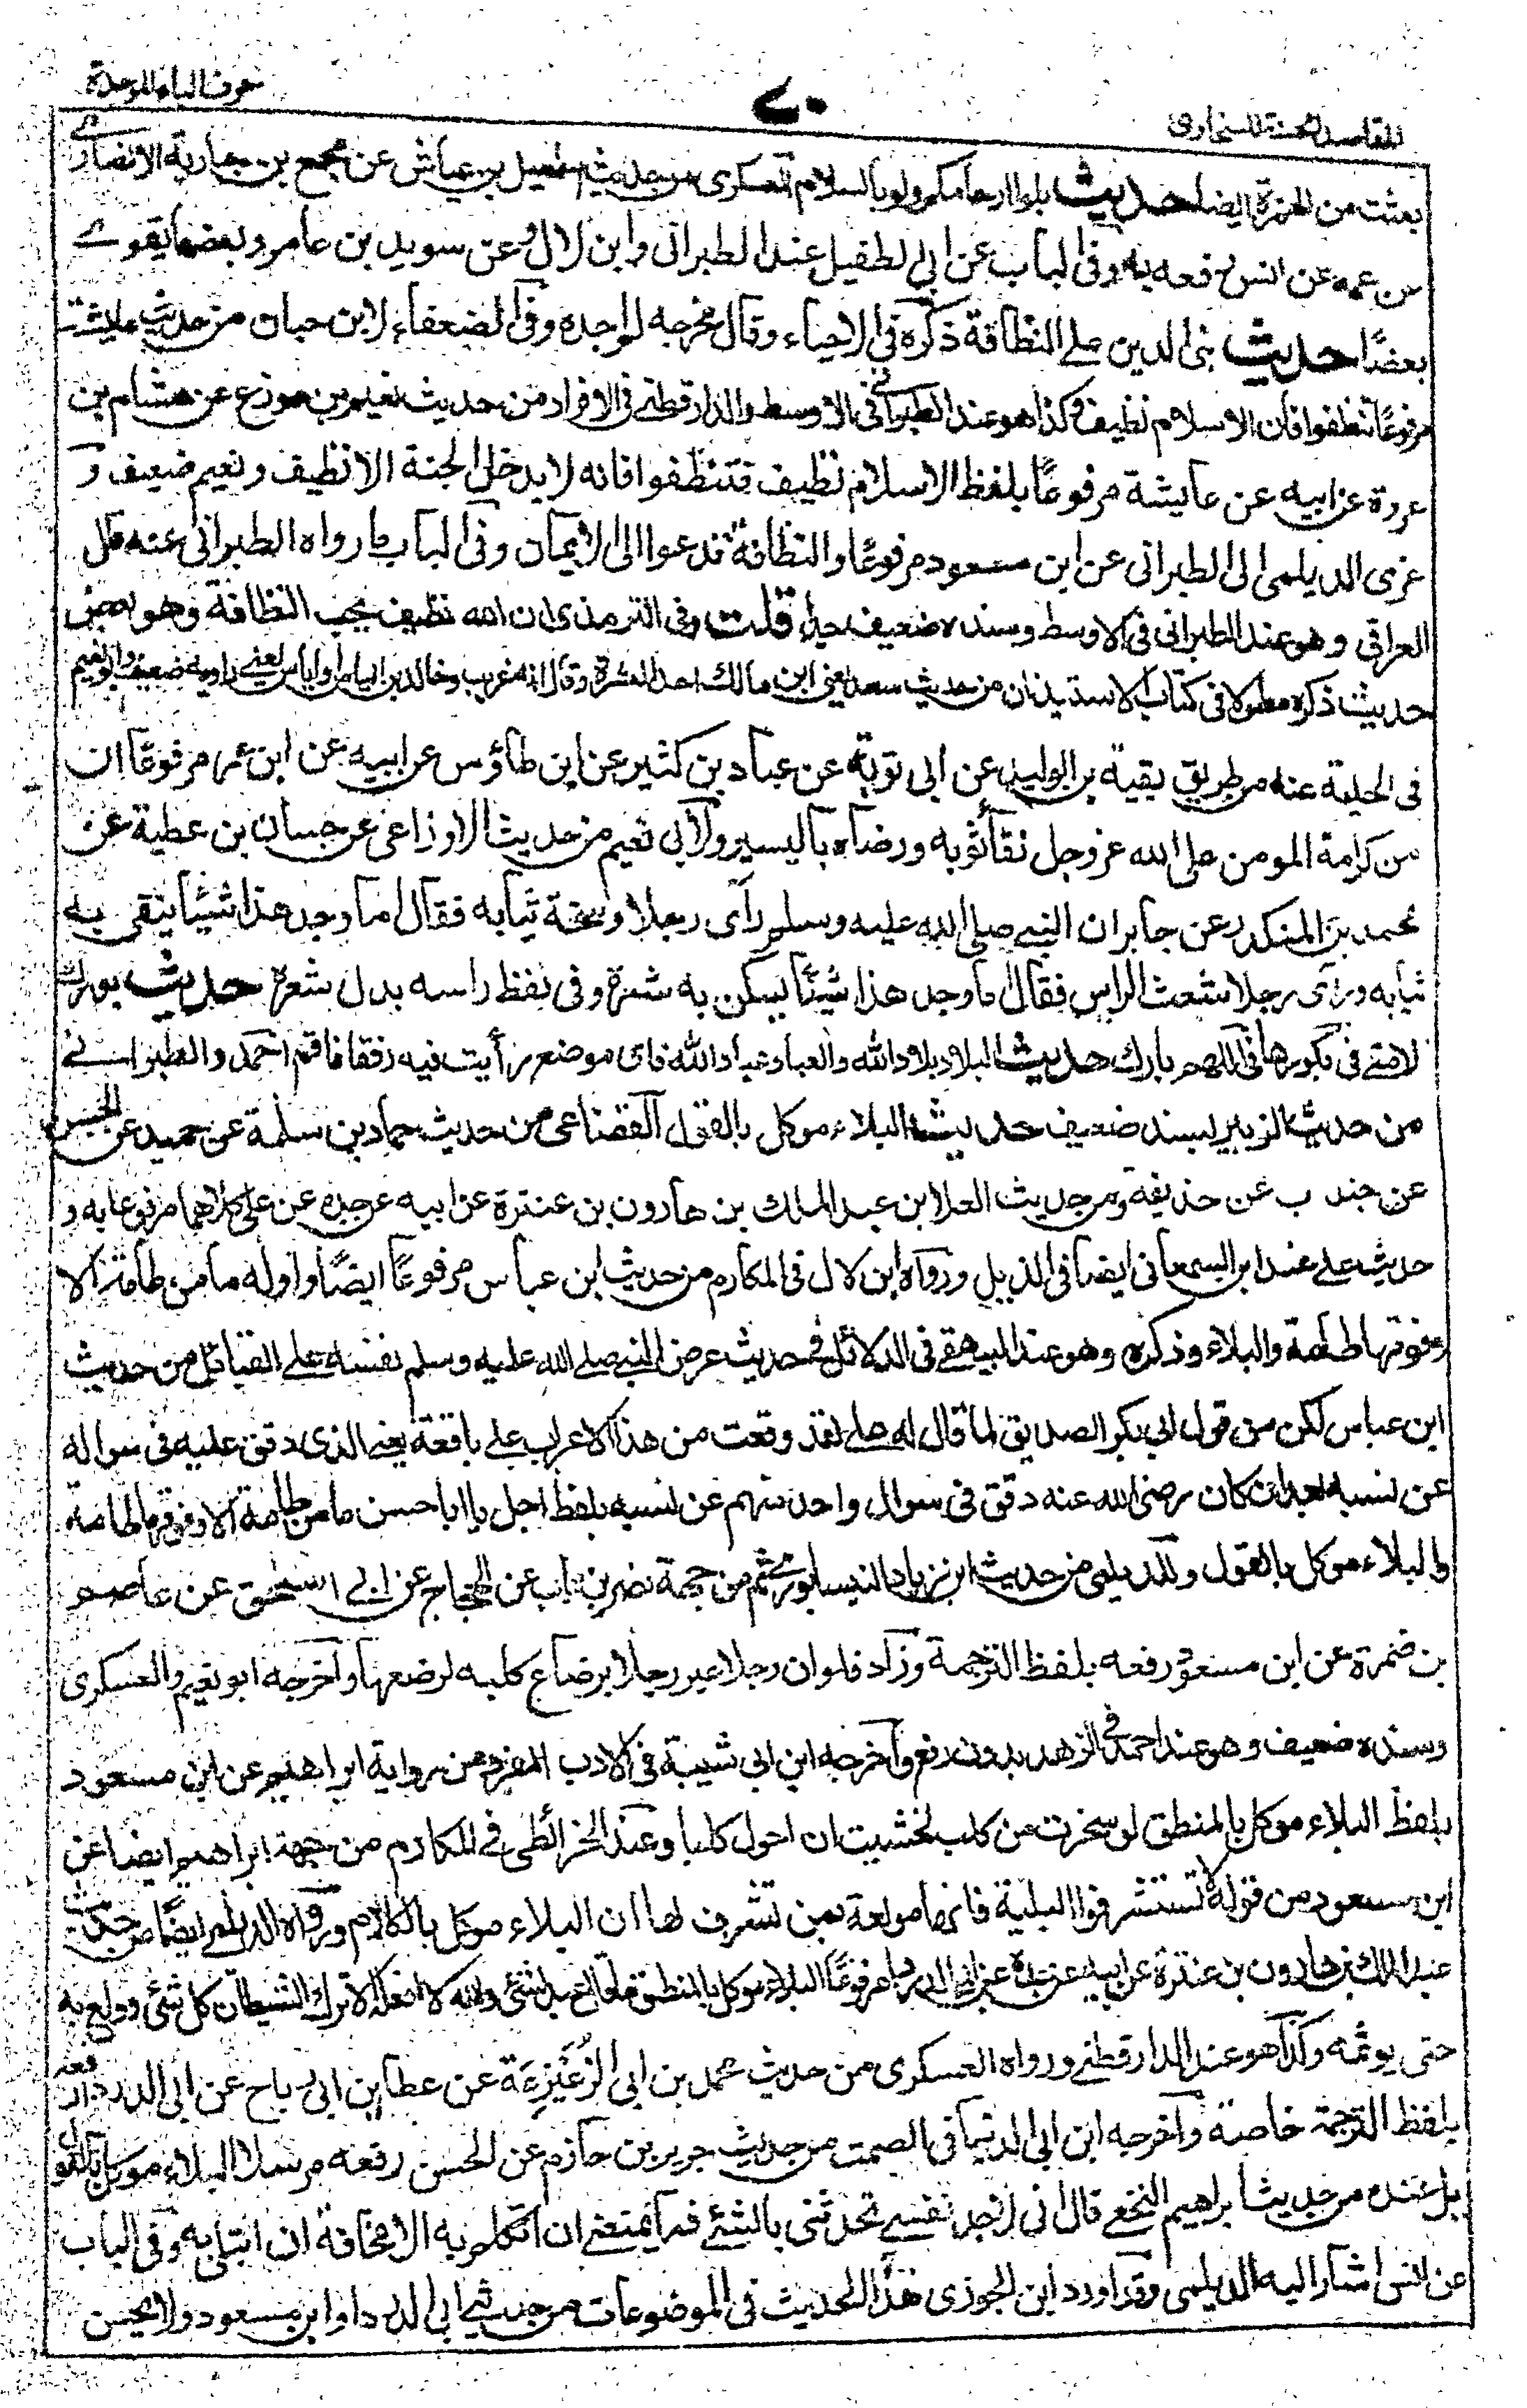 حرف الباء الموحدة
٧٠
المقاصد الحسنة للسخاوى
بعثت من الحمزة ايضا حديث بلوا ارحامكم ولو بالسلام العسكرى من حديث اسمعيل بن عياش عن مجمع بن جارية الانصارى
عن عمه عن انس رفعه به وفى الباب عن ابى الطفيل عند الطبرانى وابن لال وعن سويد بن عامر وبعضها يقوى
بعضًا حديث بنى الدين على النظافة ذكره فى الاحياء وقال مخرجه لم اجده وفى الضعفاء لابن حبان من حديث عايشة
مرفوعًا تنظفوا فان الاسلام نظيف وكذا هو عند الطبرانى فى الاوسط والدارقطنى فى الافراد من حديث نعيم بن مورع عن هشام بن
عروة عن ابيه عن عايشة مرفوعًا بلفظ الاسلام نظيف فتنظفوا فانه لا يدخل الجنة الا نظيف ونعيم ضعيف و
عزى الديلمى الى الطبرانى عن ابن مسعود مرفوعًا والنظافة تدعوا الى الايمان وفى الباب ما رواه الطبرانى عنه قال
العراقى وهو عند الطبرانى فى الاوسط وسنده ضعيف جدا قلت وفى الترمذى ان الله نظيف يحب النظافة وهو بعض
حديث ذكره مطولا فى كتاب الاستيذان من حديث سعد يعنى ابن مالك احد العشرة وقال انه غريب وخالد بن الياس او اياس يعنى راويه ضعيف ولابى نعيم
فى الحلية عنه من طريق بقية بن الوليد عن ابى توبة عن عباد بن كثير عن ابن طاؤس عن ابيه عن ابن عمر مرفوعًا ان
من كرامة المومن على الله عز وجل نقأ ثوبه ورضاه باليسير ولابى نعيم من حديث الاوزاعى عن حسان بن عطية عن
محمد بن المنكدر عن جابر ان النبى صلى الله عليه وسلم رأى رجلا وسخة ثيابه فقال اما وجد هذا شيئا ينقى به
ثيابه ورأى رجلا شعث الراس فقال ما وجد هذا شيئًا يسكن به شعره وفى لفظ راسه بدل شعره حديث بورك
لامتى فى بكورها فى اللهم بارك حديث البلاد بلاد الله والعباد عباد الله فاى موضع رأيت فيه رفقا فاقم احمد والطبرانى
من حديث الزبير بسند ضعيف حديث البلاء موكل بالقول القضاعى من حديث حماد بن سلمة عن حميد عن الحسن
عن جندب عن حذيفة ومن حديث العلا بن عبد الملك بن هارون بن عنترة عن ابيه عن جده عن على كلاهما مرفوعا به و
حديث على عند ابن السمعانى ايضا فى الذيل ورواه ابن لال فى المكارم من حديث ابن عباس مرفوعًا ايضًا واوله ما من طامة الا
وفوقها طامة والبلاء وذكره وهو عند البيهقى فى الدلائل فى حديث عرض النبى صلى الله عليه وسلم نفسه على القبائل من حديث
ابن عباس لكن من قول ابى بكر الصديق لما قال له على لقد وقعت من هذا الاعرابى على باقعة يعنى الذى دقق عليه فى سواله
عن نسبه بعد ان كان رضى الله عنه دقق فى سوال واحد منهم عن نسبه بلفظ اجل يا ابا حسن ما من طامة الا وفوقها طامة
والبلاء موكل بالقول وللديلمى من حديث ابن زياد النيسابورى ثم من جهة نصر بن باب عن الحجاج عن ابى اسحق عن عاصم
بن ضمرة عن ابن مسعود رفعه بلفظ الترجمة وزاد فلو ان رجلا عير رجلا برضاع كلبه لرضعها واخرجه ابو نعيم والعسكرى
وسنده ضعيف وهو عند احمد فى الزهد بدون رفع واخرجه ابن ابى شيبة فى الادب المفرد من رواية ابراهيم عن ابن مسعود
بلفظ البلاء موكل بالمنطق لو سخرت من كلب لخشيت ان احول كلبا وعند الخرائطى فى المكارم من جهة ابراهيم ايضا عن
ابن مسعود من قوله لا تستشرفوا البلية فانها مولعة بمن تشرف لها ان البلاء موكل بالكلام ورواه الديلمى ايضًا من حديث
عبد الملك بن هارون بن عنترة عن ابيه عن جده عن ابى الدردا مرفوعًا البلاء موكل بالمنطق ما قال عبد لشئ والله لا افعله الا ترك الشيطان كل شئ وولع به
حتى يوثمه وكذا هو عند الدارقطنى ورواه العسكرى من حديث محمد بن ابى الزُعَيزِعَة عن عطا بن ابى رباح عن ابى الدرداء رفعه
بلفظ الترجمة خاصة واخرجه ابن ابى الدنيا فى الصمت من حديث جرير بن حازم عن الحسن رفعه مرسلا البلاء موكل بالقول
بل عنده من حديث ابراهيم النخعى قال انى لاجد نفسى تحدثنى بالشئ فما يمنعنى ان اتكلم به الا مخافة ان ابتلى به وفى الباب
عن انس اشار اليه الديلمى وقد اورد ابن الجوزى هذا الحديث فى الموضوعات من حديثى ابى الدردا وابن مسعود ولا يحسن